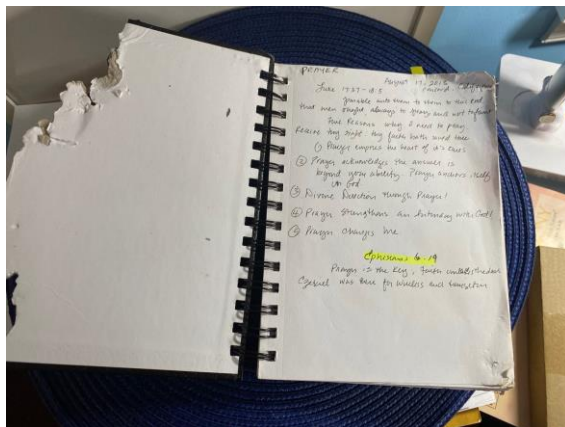 PRAYER
August 17, 2015
Luke 17:37-18:5
parable unto them to this end
that men ought, always to pray and not to faint
Five Reasons why I need to pray
(1) Prayer empties the heart of it's cares
(2) Prayer acknowledges the answer is
beyond your ability. Prayer anchors itself
on God
(3) Divine Direction through Prayer!
(4) Prayer strengthens an Intimacy with God!
(5) Prayer changes me
Ephesians 6-19
Prayer is the key, Faith unlocks the door
was there for